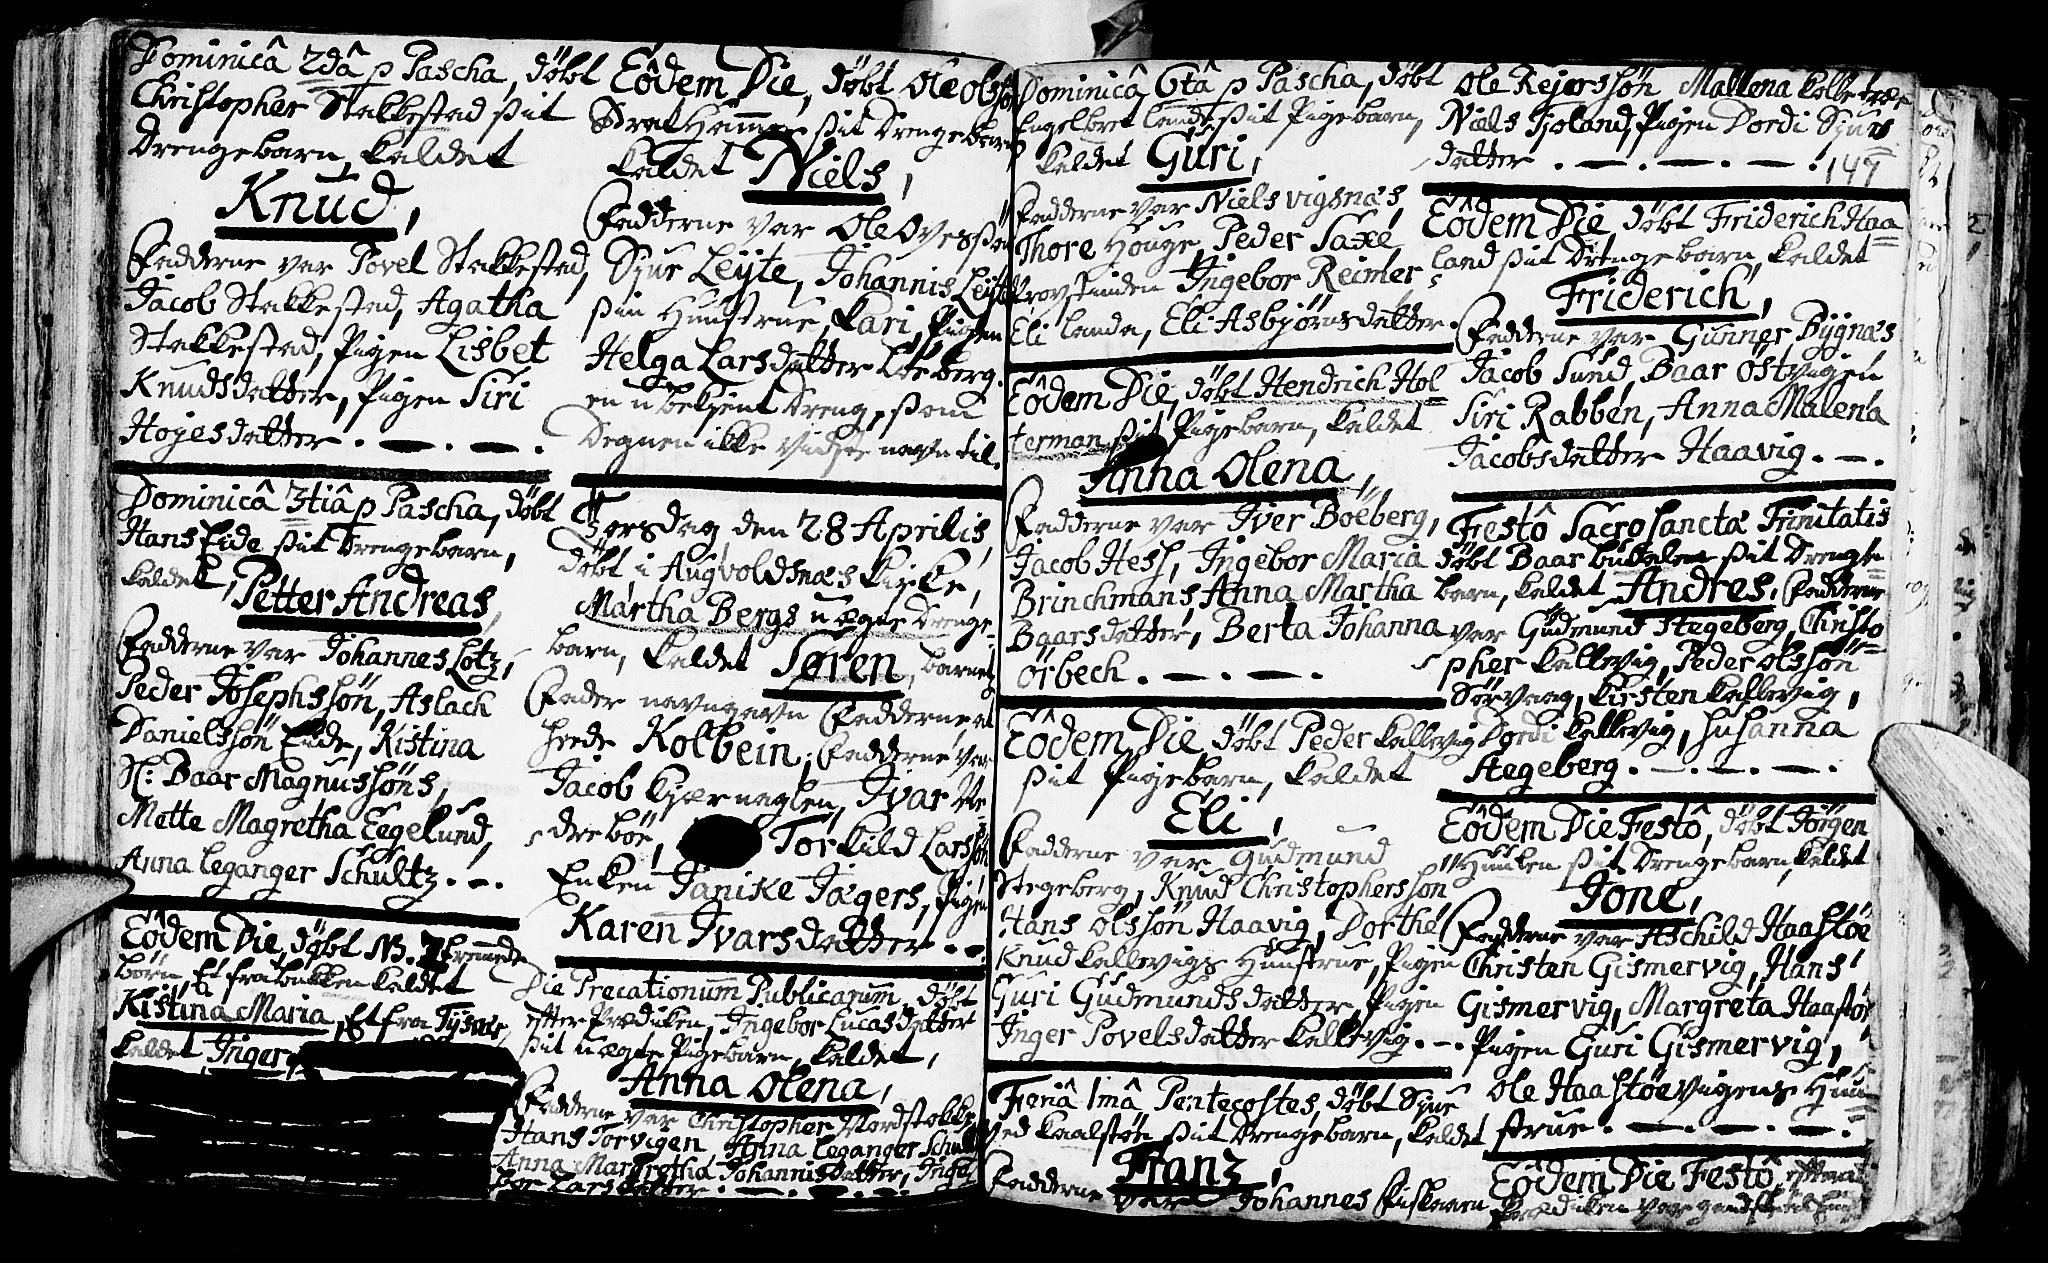 Dominicâ 2dâ p Pascha, döbt
Christopher Stakkestad sit
Drengebarn, kaldet
Knud,
Fadderne var Povel Stakkestad,
Jacob Stakkestad, Agatha
Stakkestad, Pigen Lisbet
Knudsdatter, Pigen Siri
Hojesdatter. — . — .
Dominicâ 3tiâ p Pascha, döbt
Hans Eide sit Drengebarn,
kaldet,
Petter Andreas,
Fadderne var Johannes Lotz,
Peder Josephssön, Aslach
Danielssön Eide, Kistina
Sl: Baar Magnussöns,
Mette Magretha Eegelund,
Anna Leganger Schültz. — .
Eôdem Die, döbt NB. 2 fremmede
börn, Et fra bukken kaldet
Kistina Maria, Et fra Tysvær,
kaldet, Inger,
Eôdem Die, döbt Ole Olssön
Hammer sit Drengebarn
kaldet Niels,
Fadderne var Ole Ovessön
Sjur Leyte, Johannis Leyte
sin Hustrue, Kari, Pigen
Helga Larsdatter Löeberg.
en ubekient Dreng, som
Degnen ikke vidste navn til.
Torsdag den 28 Aprilis,
döbt i Augvoldsnæs Kirke,
Martha Bergs uægte Drenge-
barn, kaldet Søren, barnets
Fader navngavn Fadderne at
heede Kolbein; Fadderne var
Jacob Kjærnaglen, Ivar Ne-
dreböe, Torkild Larssön
Enken Janike Jægers, Pigen
Karen Ivarsdatter — .
Die Precationum Publicarum, döbt
efter Prædiken, Ingebor Lucasdatter
sit uægte Pigebarn, kaldet,
Anna Olena,
Fadderne var Christopher Nordstokke,
Hans Torvigen, Anna Leganger Schultz
Anna Margretha Johannisdatter, Inge-
bor Larsdatter. — . — . — .
Dominicâ 6tâ p Pascha, döbt
Engelbret Lande sit Pigebarn,
kaldet Guri,
Fadderne var Niels Vigsnæs,
Thore Houge, Peder Saxe
Provstinden Ingebor Reimers,
Eli Landa, Eli Asbjörnsdatter.
Eôdem Die, döbt Hendrich Hol-
terman sit Pigebarn, kaldet
Anna Olena,
Fadderne var Iver Böeberg,
Jacob Hess, Ingebor Maria
Brinchmans, Anna Martha
Baarsdatter, Berta Johanna
Örbech. — . — .
Eôdem Die, döbt Peder Kallevig
sit Pigebarn, kaldet
Eli,
Fadderne var Gudmund
Stegeberg, Knud Christopherssön
Hans Olssön Haavig, Dorthe
Knud Kallevigs Hustrue, Pigen
Guri Gudmundsdatter, Pigen
Inger Povelsdatter Kallevig. — .
Feriâ 1mâ Pentecostes, döbt Sjur
ved Kaalstöe sit Drengebarn, kaldet
Franz,
Fadderne var Johannes Fiskaaen
Ole Rejerssön Mallena Kalletræe
Niels Tjoland, Pigen Dordi Sjurs
datter — . — . — .
147
Eôdem Die döbt Friderich Haa-
land sit Drengebarn, kaldet
Friderich,
Fadderne var Gunner Bygnæs
Jacob Sund, Baar Östvigen
Siri Rabben, Anna Malena
Jacobsdatter Haavig. — .
Festô Sacrosanctæ Trinitatis
döbt Baar sit Drenge-
barn, kaldet Andres, Fadderne
var Gudmund Stegeberg, Christo-
pher Kallevig, Peder Olssön
Sörvaag, Kirsten Kallevig,
Dordi Kallevig, Susanna
Stegeberg. — . — . — .
Eôdem Die Festô, döbt Jörgen
sit Drengebarn, kaldet
Jone,
Fadderne var Aschild Haastöe
Christen Gismervig, Hans
Gismervig, Margreta Haastöe
Pigen Guri Gismervig,
Ole Haastöevigens Hu-
strue. — . — . — .
Eôdem Die Festô,